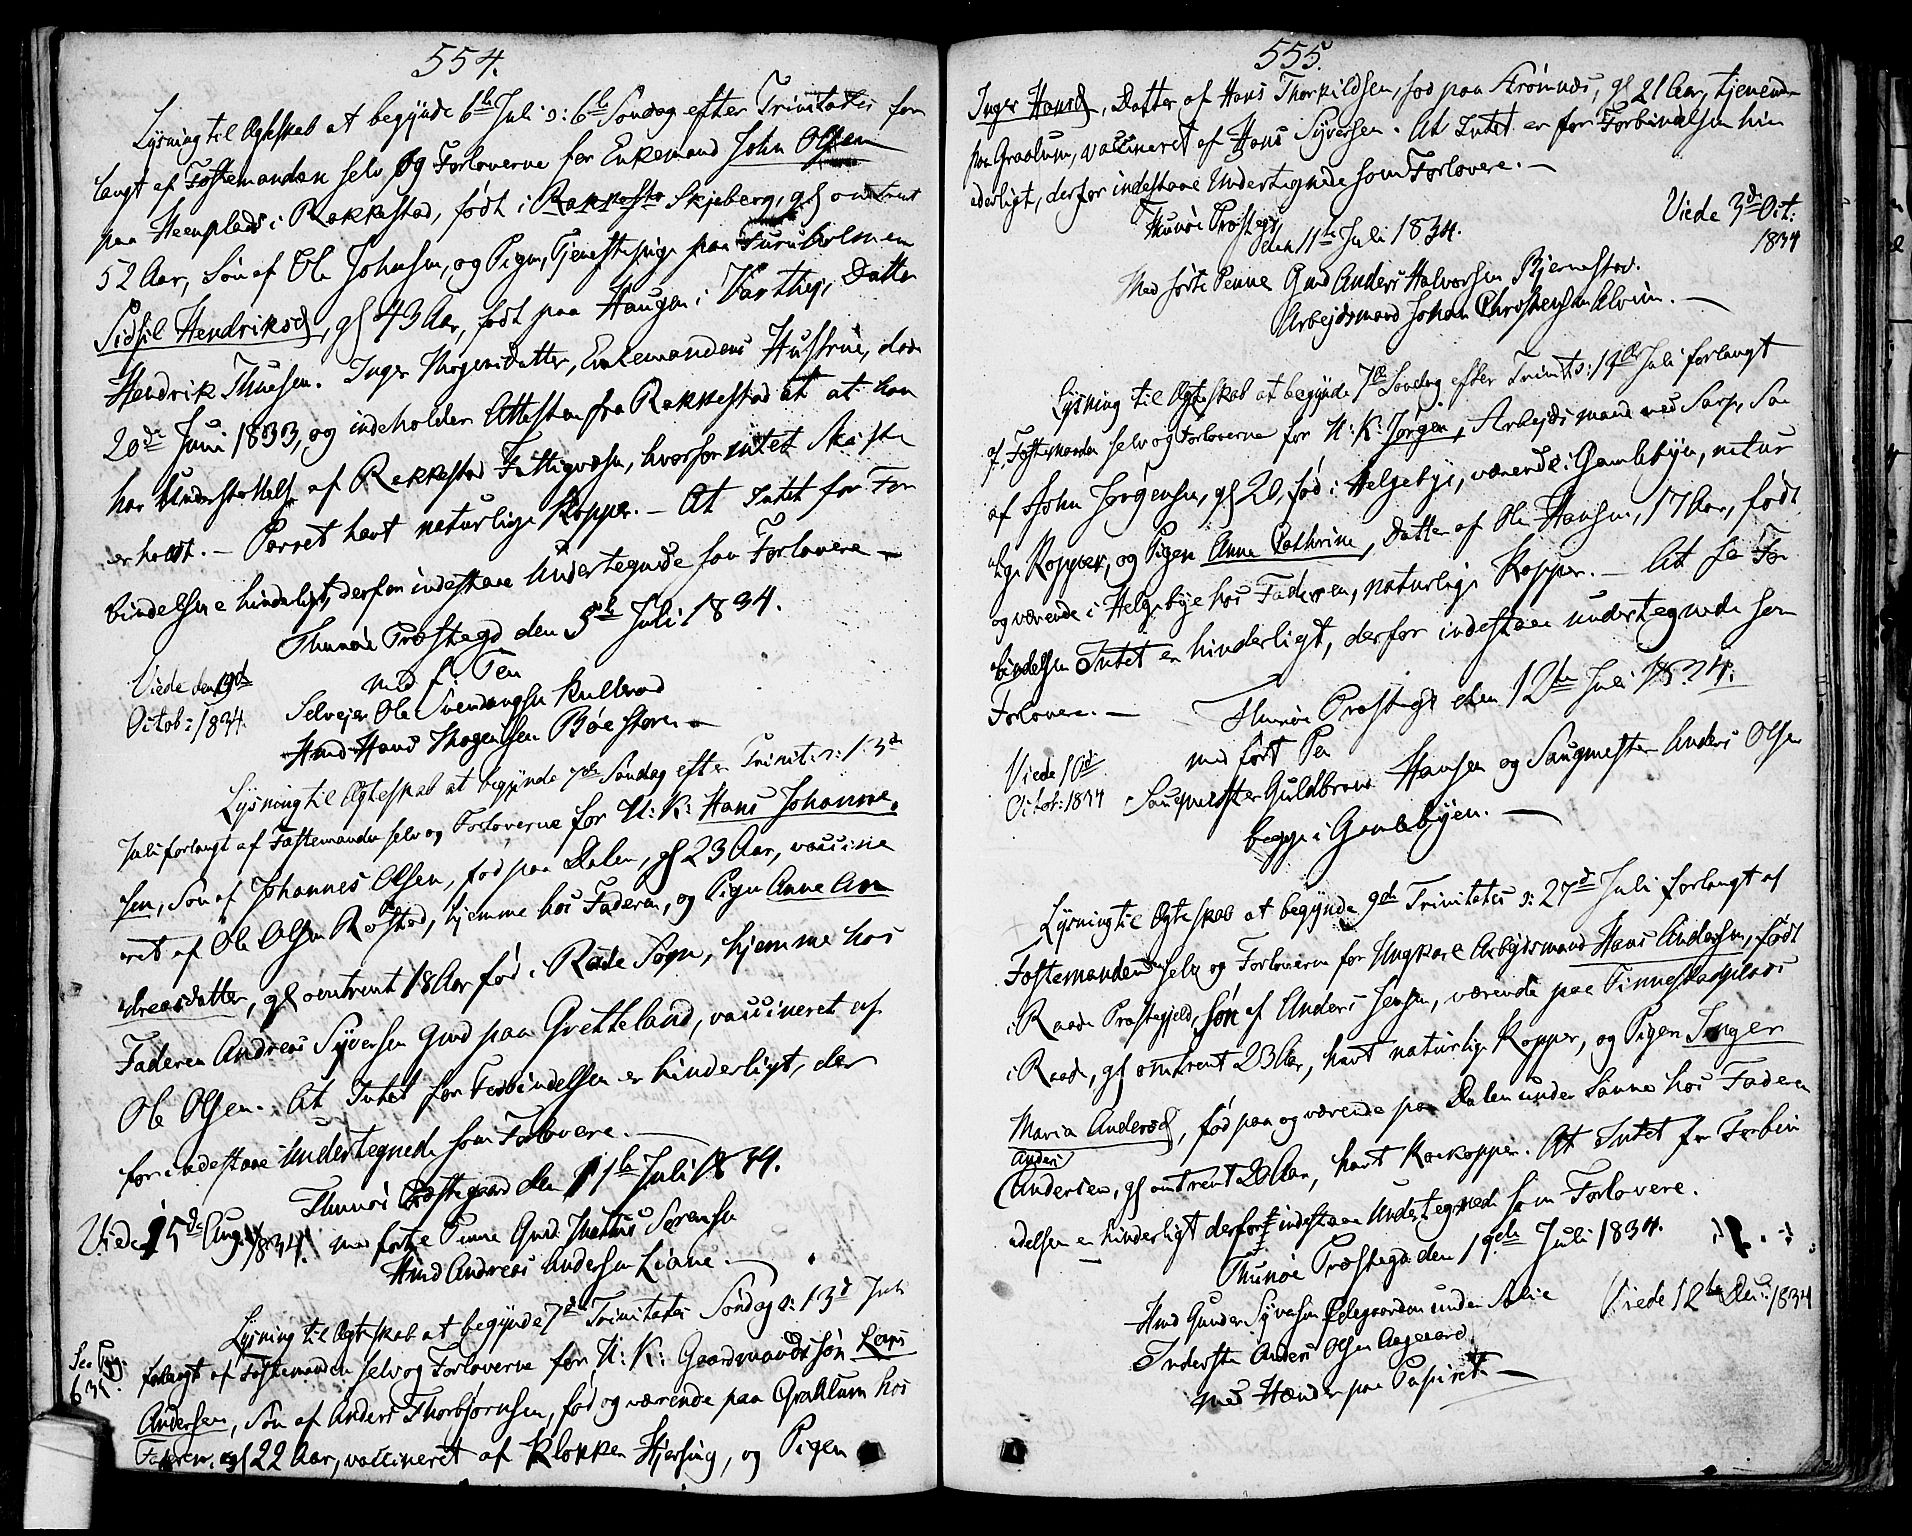 554.
Lysning til Ægteskab at begynde 6te Juli ɔ: 6te Søndag efter Trinitatis for
langt af Fæstemanden selv og Forloverne for Enkemand John Olsen
paa Heenplads i Rakkestad, født i Rakkesta Skjeberg, gl omtrent
52 Aar, Søn af Ole Johnsen, og Pigen, Tjenestepige paa Furuholmen
Sidsil Hendriksd, gl 43 Aar, født paa Haugen i Varthej, Datter
Hendrik Thuesen. Inger Mogensdatter, Enkemandens Hustrue, døde
20de Juni 1833, og indeholder Attesten fra Rakkestad at at han
har Understøttelse af Rakkestad Fattigvæsen, hvorfor intet Skifte
er holdt. – Parret havt naturlige Kopper. – At Intet for For
bindelsen e hinderligt, derfor indestaae Undertegnede som Forlovere –
Thunøe Præstegd den 5te Juli 1834.
Viede den 19de
Octob: 1834.
med f. Pen
Selvejer Ole Svendungsen Kullerød
Hmd Hans Mogensen Bøe store –
Lysning til Ægteskab at begynde 7de Søndag efter Trinit: ɔ: 13de
Juli forlangt af Fæstemanden selv og Forloverne for U: K: Hans Johanne
sen, Søn af Johannes Olsen, fød paa Dalen, gl 23 Aar, vaccine
ret af Ole Olsen Røstad, hjemme hos Faderen, og Pigen Anne An
dreasdatter, gl omtrent 18 Aar fød i Raade Sogn, hjemme hos
Faderen Andreas Syversen Gmd paa Gretteland, vaccineret af
Ole Olsen. At Intet for Forbindelsen er hinderligt, der
for indestaae Undertegnede som Forlovere. –
Thunøe Præstegaard den 11te Juli 1834.
Viede 15de Aug. 1834.
med førte Penne Gmd Sørensen
Hmd Andreas Andersen Liane. –
Lysning til Ægteskab at begynde 7de Trinitatis Søndag ɔ: 13d Juli
See Pag.
634.
forlangt af Fæstemanden selv og Forloverne for U: K: Gaardmandssøn Lars
Andersen, Søn af Anders Thorbjørnsen, fød og værende paa Graalum hos
Faderen, gl 22 Aar, vaccineret af Klokker Hjersing, og Pigen
555.
Inger Hansd, Datter af Hans Thorkildsen, fød paa Strømnæs, gl 21 Aar, tjenende
paa Graalum, vaccineret af Hans Syversen. At Intet er for Forbindelsen hin
derligt, derfor indestaae Undertegnede som Forlovere. –
Thunøe Præstegd
den 11te Juli 1834.
Viede 3de Oct:
1834
Med førte Penne Gmd Anders Halvorsen Bjørnstad.
Arbejdsmand Johan Christensen Alvim. –
Lysning til Ægteskab at begynde 7de Søndag efter Trinit ɔ: 13de Juli forlangt
af Fæstemanden selv og Forloverne for U: K: Jørgen, Arbejdsmand ved Sarp, Søn
af John Jørgensen, gl 20, fød i Helgebye, værende i Gamlebyen, natur
lige Kopper, og Pigen Anne Cathrine, Datter af Ole Hansen, 17 Aar, født
og værende i Helgebye hos Faderen, naturlige Kopper. – At for For
bindelsen Intet er hinderligt, derfor indestaae undertegnede som
Forlovere. –
Thunøe Præstegd den 12te Juli 1834.
Viede 10de
Octob: 1834
med ført Pen
Saugmester Guldbrand Hansen og Saugmester Anders Olsen
begge i Gamlebyen. –
Lysning til Ægteskab at begynde 9de Trinitatis ɔ: 27de Juli forlangt af
Fæstemanden selv og Forloverne for Ungkarl Arbejdsmand Hans Andersen, født
i Raade Præstegjeld, Søn af Anders Jensen, værende paa Finnestadplads
i Raade, gl omtrent 23 Aar, havt naturlige Kopper, og Pigen Inger
Maria Andersd, fød paa og værende paa Dalen under Sanne hos Faderen
Anders
Andersen, gl omtrent 20 Aar, havt Koekopper. At Intet for Forbin
delsen er hinderligt derfor indestaae Undertegnede som Forlovere.
Thunøe Præstegd den 19de Juli 1834.
Viede 12te Dec: 1834
Hmd Gunder Syversen Pelegaarden under Solie
Inderste Anders Olsen Aagaard
med Hænder paa Papiret –